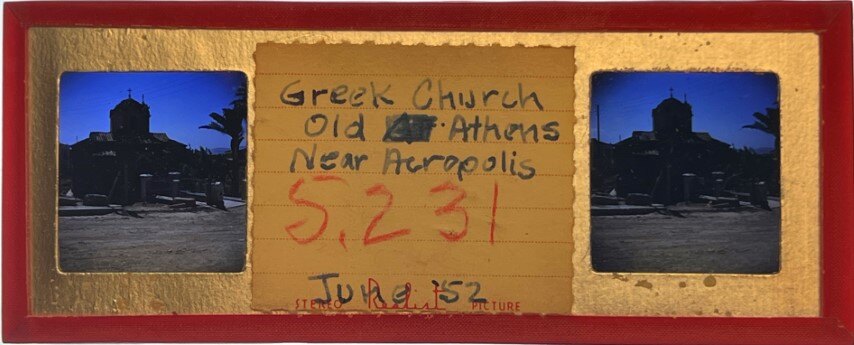 Greek Church
Old Athens
Near Acropolis
5,231
June '52
STEREO Realist PICTURE